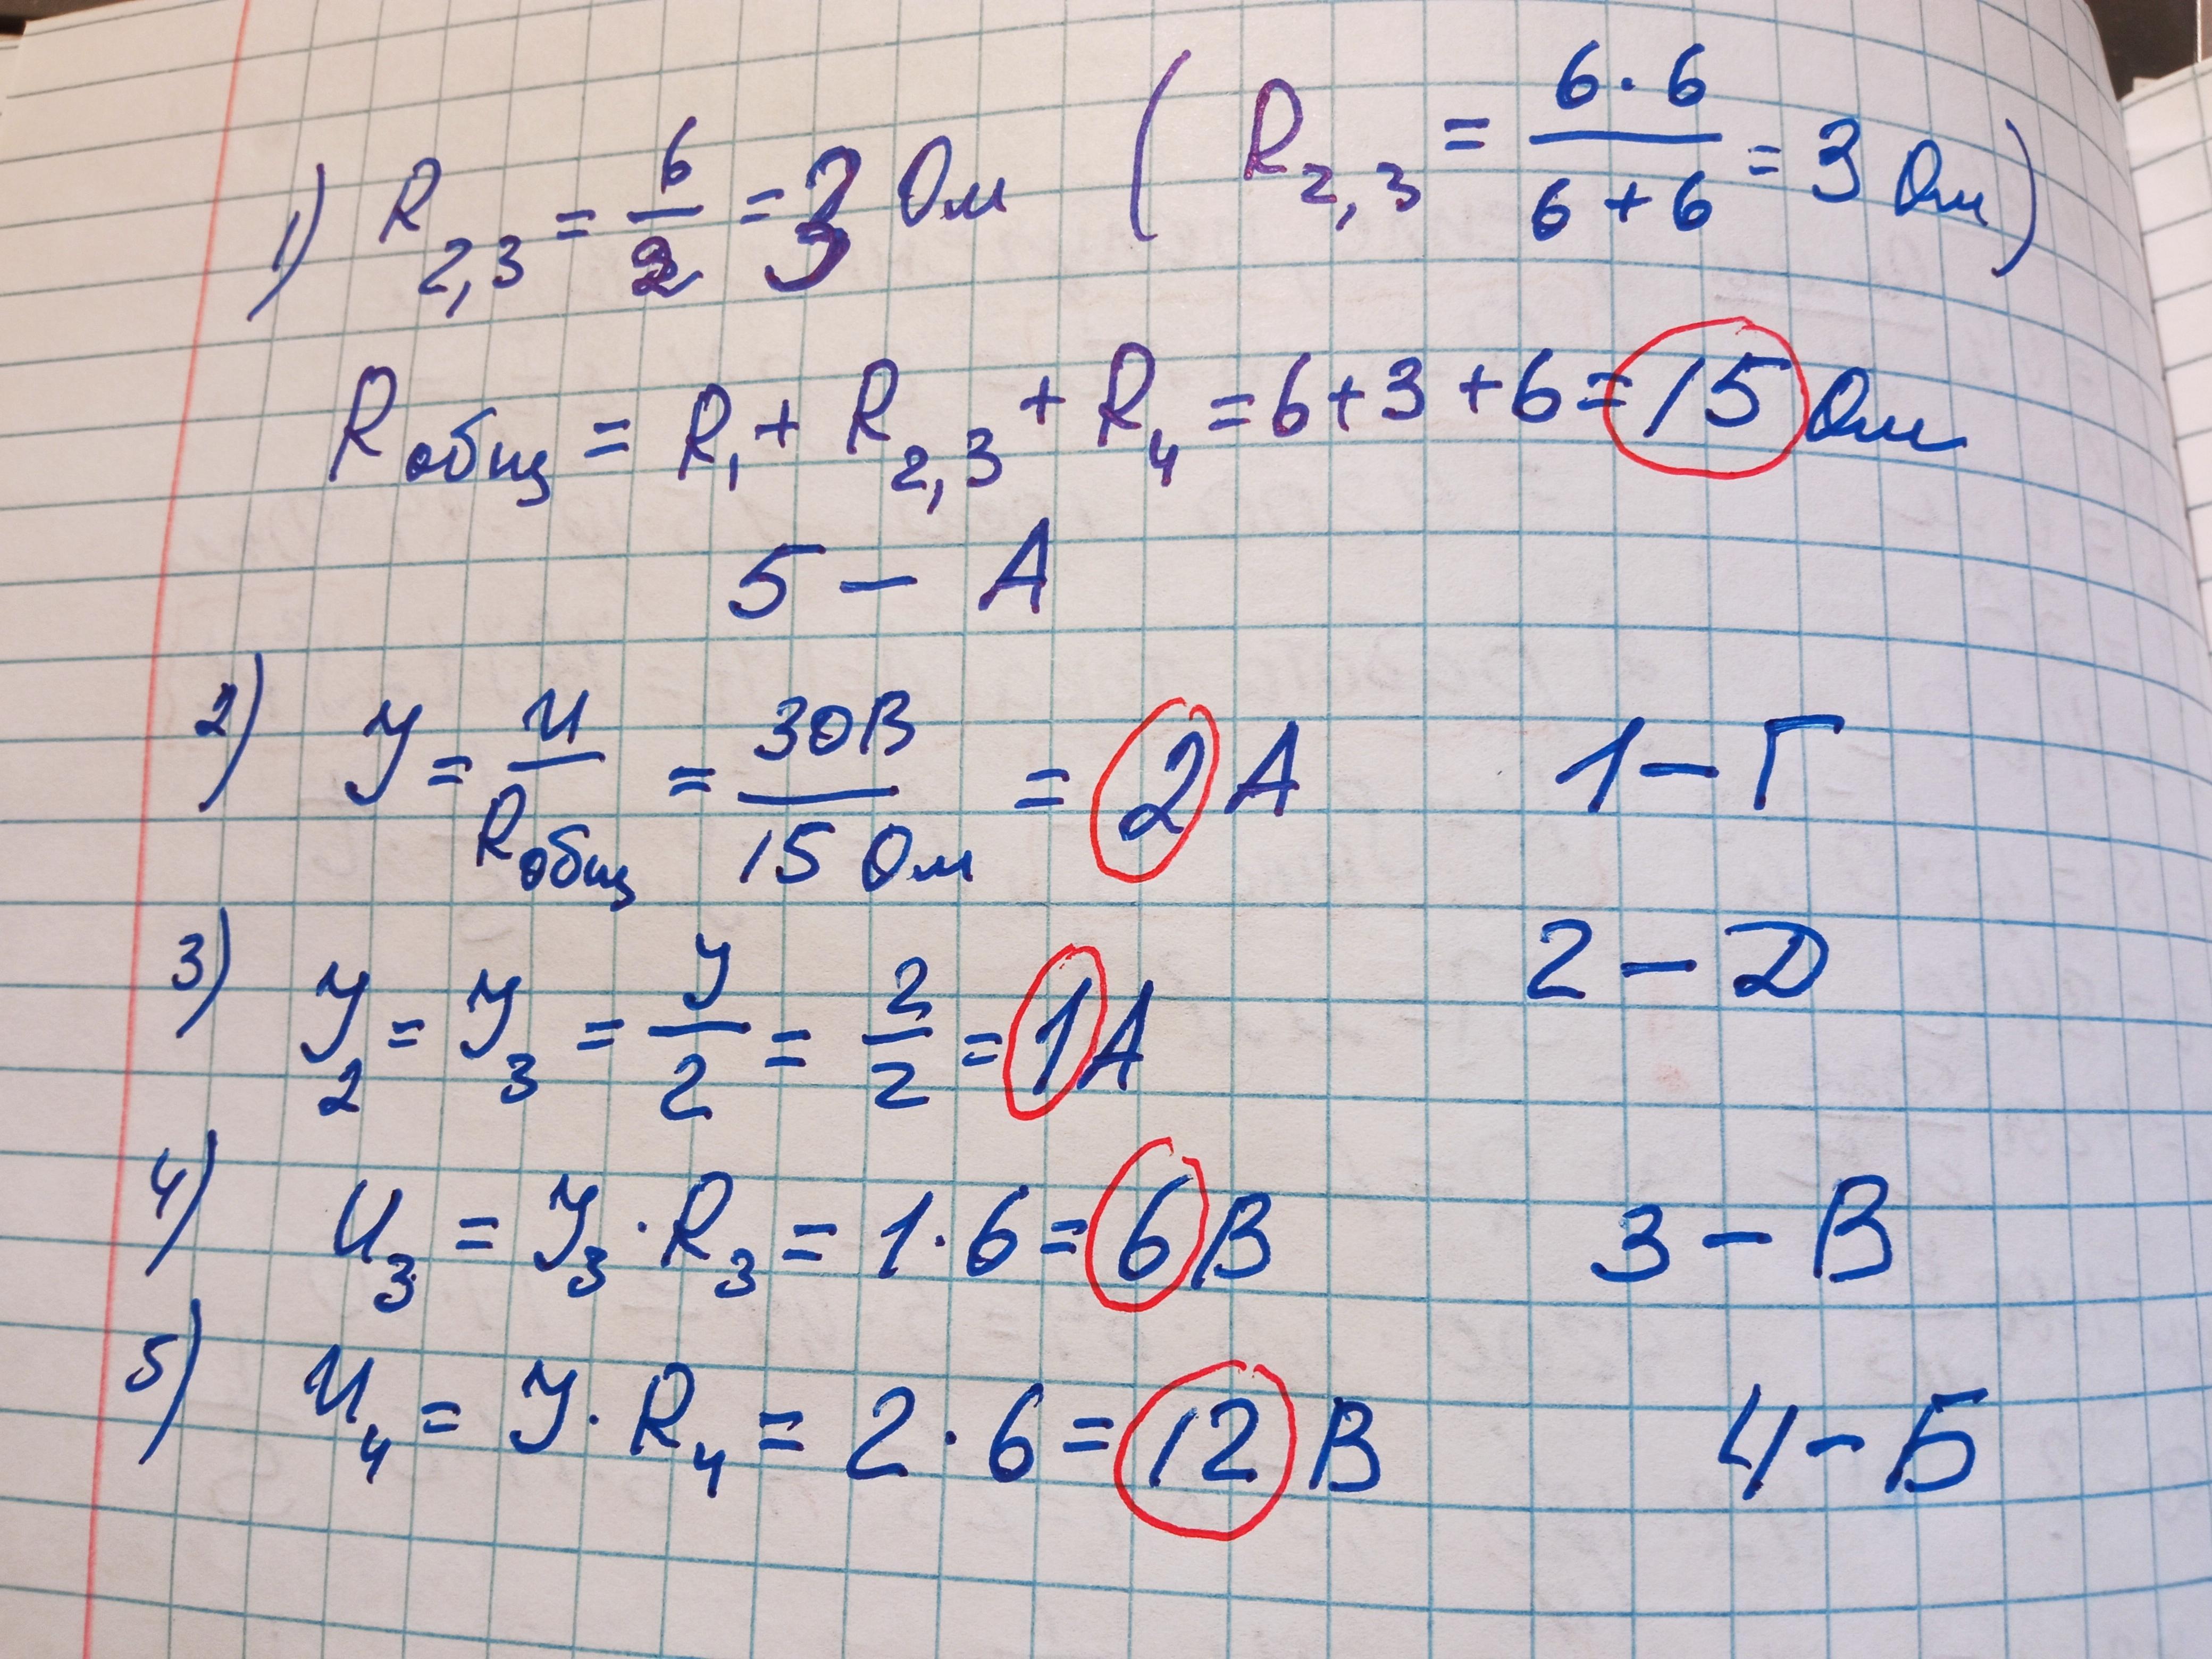 1) R2,3 = 6/2 = 3 Ом ( R2,3 = 6·6/6+6 = 3 Ом )
Rобщ = R1 + R2,3 + R4 = 6+3+6 = 15 Ом
5 – А
2) У = U/Rобщ = 30В/15 Ом = 2 А 1 – Г
3) У2 = У3 = У/2 = 2/2 = 1 А 2 – Д
4) U3 = У3 · R3 = 1·6 = 6 В 3 – В
5) U4 = У · R4 = 2·6 = 12 В 4 – Б